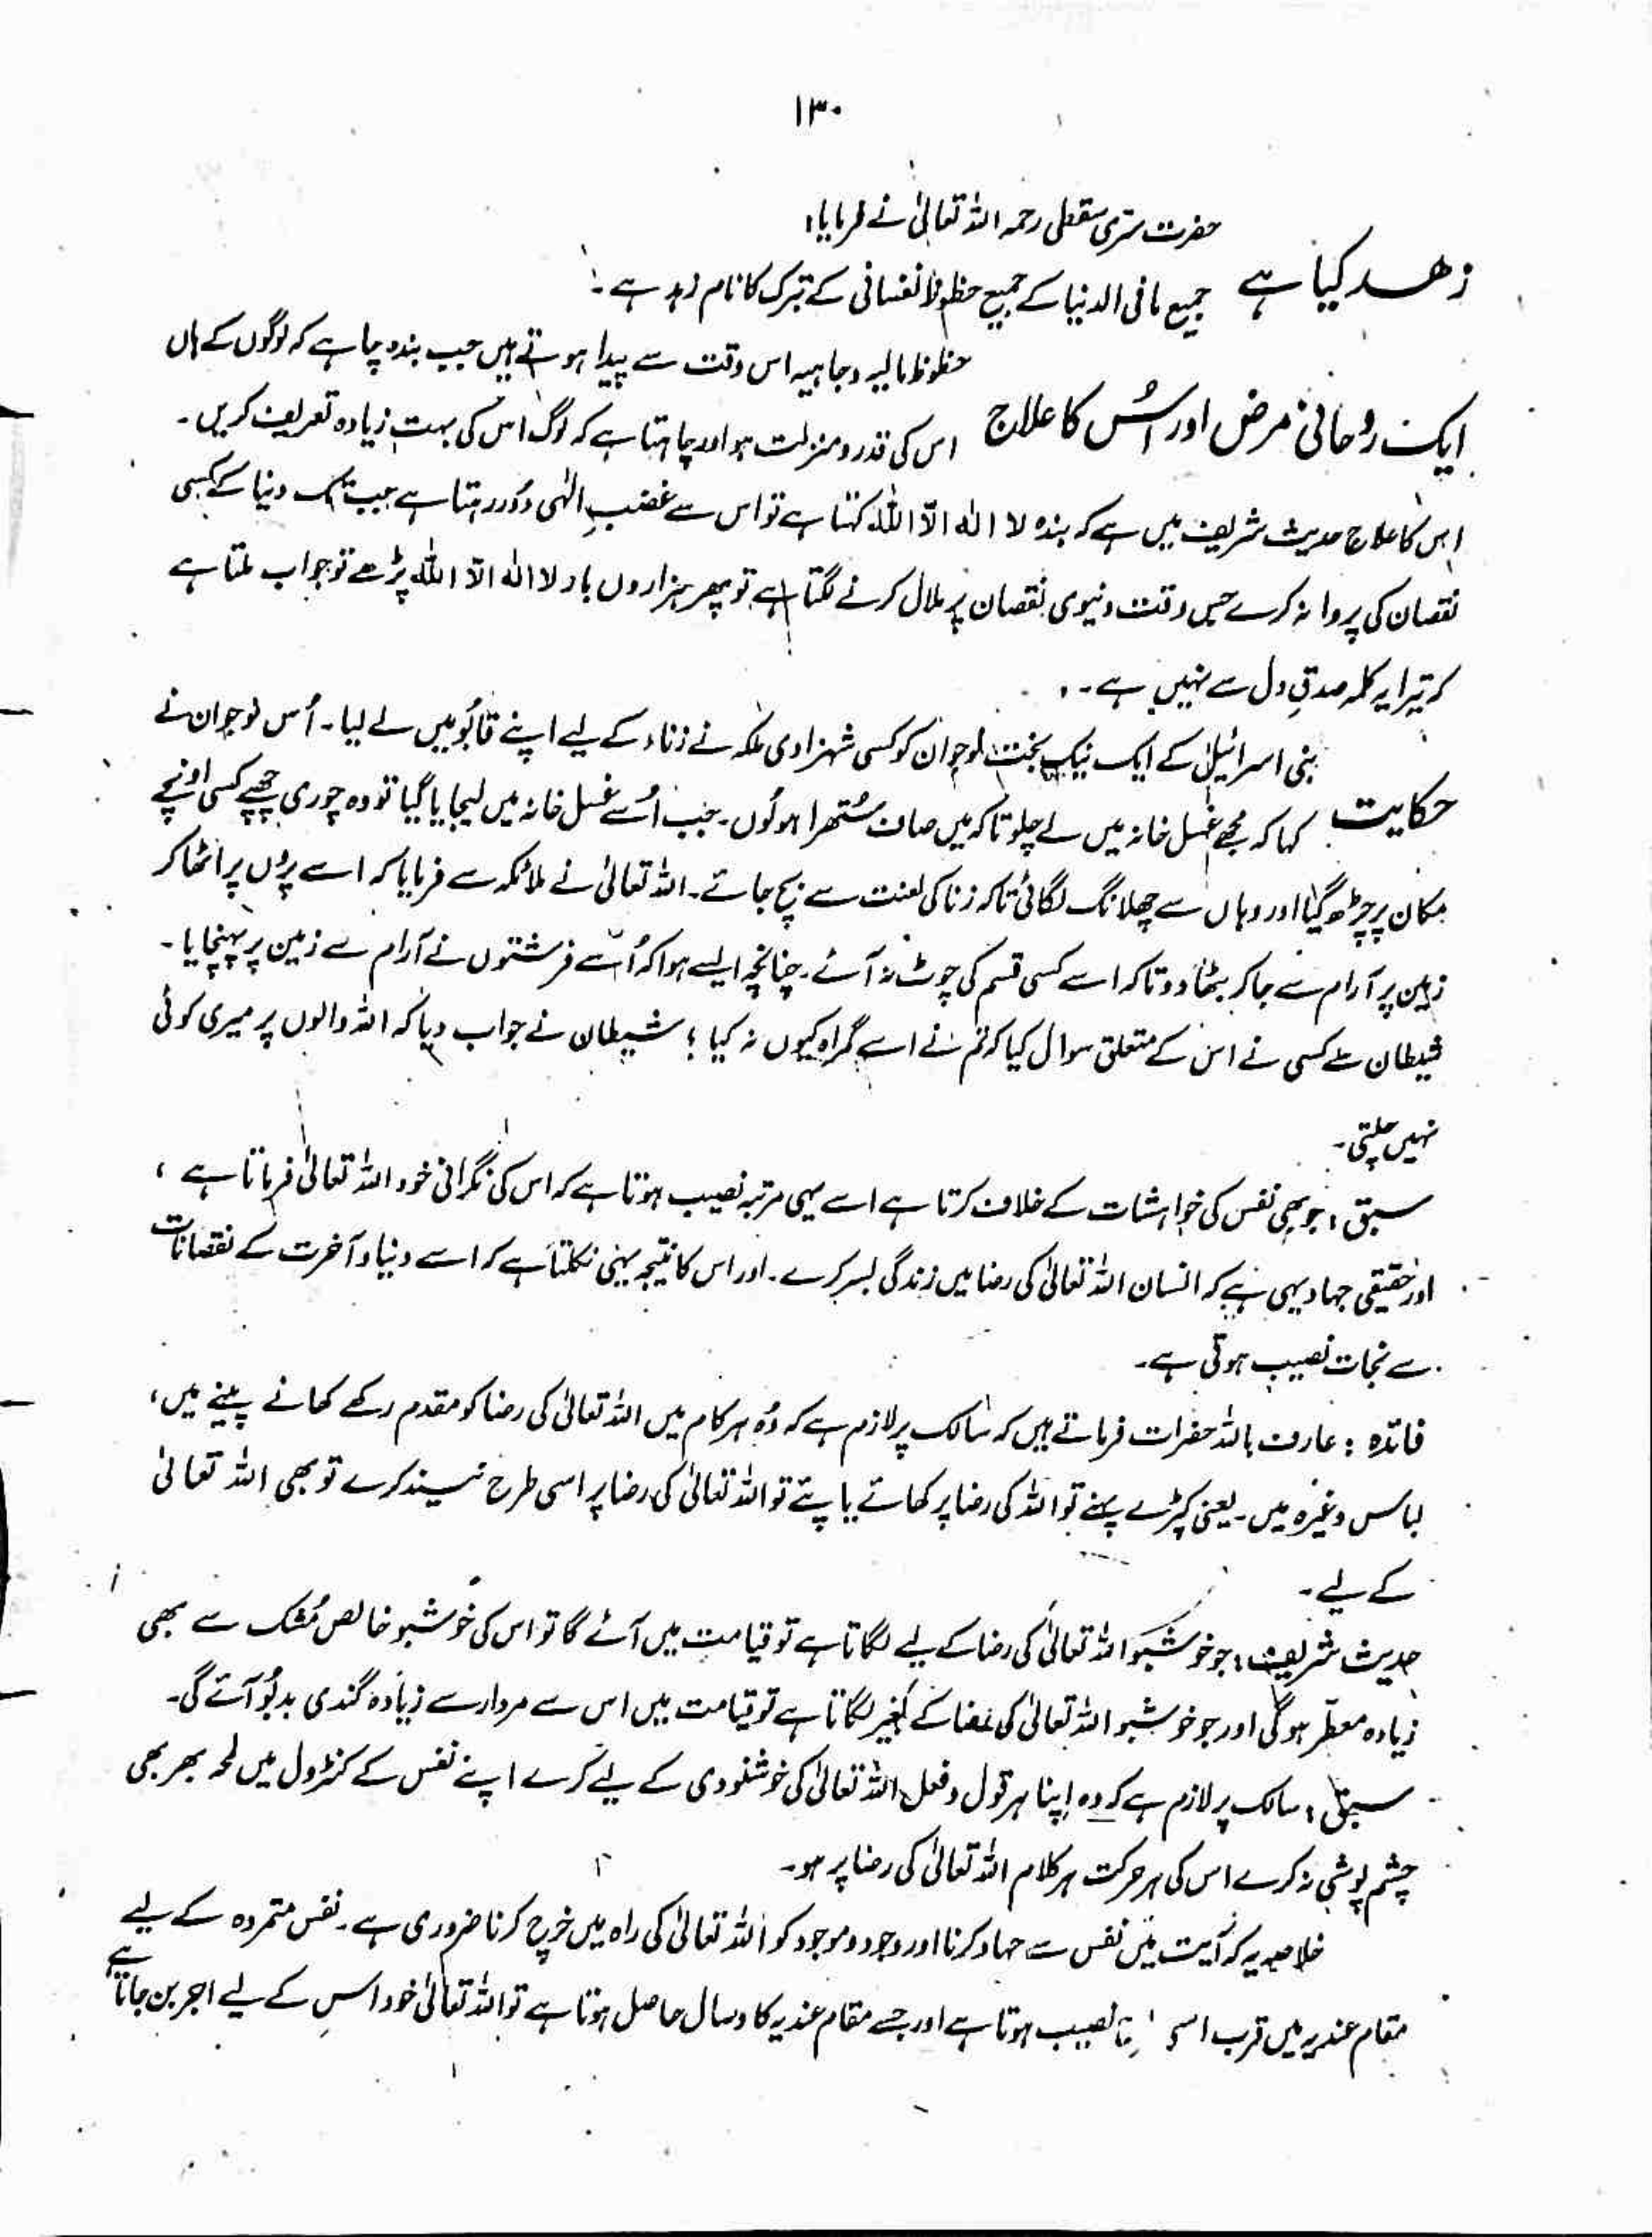 ۱۳۰
حضرت سری سقطی رحمہ اللہ تعالیٰ نے فرمایا:
زھد کیا ہے
جمیع مافی الدنیا کے جمیع حظوظ نفسانی کے ترک کا نام زہد ہے۔
حظوظ مالیہ وجاہیہ اس وقت سے پیدا ہوتے ہیں جب بندہ چاہے کہ لوگوں کے ہاں
ایک روحانی مرض اور اُس کا علاج
اس کی قدر و منزلت ہو اور چاہتا ہے کہ لوگ اس کی بہت زیادہ تعریف کریں۔
اس کا علاج حدیث شریف میں ہے کہ بندہ لا الٰہ الّا اللہ کہتا ہے تو اس سے غضبِ الٰہی دُور رہتا ہے جب تک دنیا کے کسی
نقصان کی پروا نہ کرے جس وقت دنیوی نقصان پر ملال کرنے لگتا ہے تو پھر ہزاروں بار لا الٰہ الّا اللہ پڑھے تو جواب ملتا ہے
کہ تیرا یہ کلمہ صدقِ دل سے نہیں ہے۔
بنی اسرائیل کے ایک نیک بخت نوجوان کو کسی شہزادی ملکہ نے زناء کے لیے اپنے قابُو میں لے لیا۔ اُس نوجوان نے
حکایت
کہا کہ مجھے غسل خانہ میں لے چلو تاکہ میں صاف سُتھرا ہو لُوں۔ جب اُسے غسل خانہ میں لیجایا گیا تو وہ چوری چھپے کسی اونچے
مکان پر چڑھ گیا اور وہاں سے چھلانگ لگائی تاکہ زنا کی لعنت سے بچ جائے۔ اللہ تعالیٰ نے ملائکہ سے فرمایا کہ اسے پروں پر اٹھا کر
زمین پر آرام سے جا کر بٹھا دو تاکہ اسے کسی قسم کی چوٹ نہ آئے۔ چنانچہ ایسے ہوا کہ اُسے فرشتوں نے آرام سے زمین پر پہنچایا۔
شیطان سے کسی نے اس کے متعلق سوال کیا کہ تم نے اسے گمراہ کیوں نہ کیا؛ شیطان نے جواب دیا کہ اللہ والوں پر میری کوئی
نہیں چلتی۔
سبق: جو بھی نفس کی خواہشات کے خلاف کرتا ہے اسے یہی مرتبہ نصیب ہوتا ہے کہ اس کی نگرانی خود اللہ تعالیٰ فرماتا ہے،
اور حقیقی جہاد یہی ہے کہ انسان اللہ تعالیٰ کی رضا میں زندگی بسر کرے۔ اور اس کا نتیجہ یہی نکلتا ہے کہ اسے دنیا و آخرت کے نقصانات
سے نجات نصیب ہوتی ہے۔
فائدہ: عارف باللہ حضرات فرماتے ہیں کہ سالک پر لازم ہے کہ وُہ ہر کام میں اللہ تعالیٰ کی رضا کو مقدم رکھے کھانے پینے میں،
لباس وغیرہ میں۔ یعنی کپڑے پہنے تو اللہ کی رضا پر کھائے یا پئے تو اللہ تعالیٰ کی رضا پر اسی طرح نیند کرے تو بھی اللہ تعالیٰ
کے لیے۔
حدیث شریف: جو خوشبو اللہ تعالیٰ کی رضا کے لیے لگاتا ہے تو قیامت میں آئے گا تو اس کی خوشبو خالص مُشک سے بھی
زیادہ معطّر ہوگی اور جو خوشبو اللہ تعالیٰ کی رضا کے بغیر لگاتا ہے تو قیامت میں اس سے مردار سے زیادہ گندی بدبُو آئے گی۔
سبق: سالک پر لازم ہے کہ وہ اپنا ہر قول و فعل اللہ تعالیٰ کی خوشنودی کے لیے کرے اپنے نفس کے کنٹرول میں لمحہ بھر بھی
چشم پوشی نہ کرے اس کی ہر حرکت ہر کلام اللہ تعالیٰ کی رضا پر ہو۔
خلاصہ یہ کہ آیت میں نفس سے جہاد کرنا اور وجود و موجود کو اللہ تعالیٰ کی راہ میں خرچ کرنا ضروری ہے۔ نفس متمردہ کے لیے
مقام عندیہ میں قرب نصیب ہوتا ہے اور جسے مقام عندیہ کا وصال حاصل ہوتا ہے تو اللہ تعالیٰ خود اس کے لیے اجر بن جاتا ہے